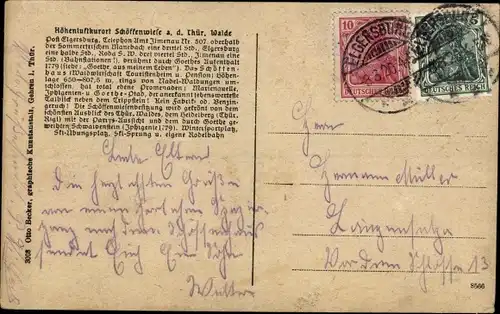 Höhenluftkurort Schöffenwiese a. d. Thür. Walde
Post Elgersburg, Telephon Amt Jlmenau Nr. 507. oberhalb
der Sommerfrischen Manebach eine dreitel Std., Elgersburg
eine halbe Std., Roda S. W. drei viertel Std., Jlmenau eine
Std. (Bahnstationen!), berühmt durch Goethes Aufenthalt
1779 (siehe: „Goethe aus meinem Leben"). Das Schöffen-
haus (Waldwirtschaft Touristenheim u. Pension) Höhen-
lage 650—807,5 m, rings von Nadel-Waldungen um-
schlossen, hat total ebene Promenaden: Marienquelle,
Jphigenien- u. Goethe-Pfad, der anerkannt sehenswertest
Talblick neben dem Trippstein! Kein Fabrik- od. Benzin-
geruch! Die Schöffenwiesenbesitzung wird gekrönt von dem
schönsten Ausblick des Thür. Waldes, dem Heidelberg (Thür.
Rigi) mit der Parry's-Aussicht und dem durch Goethe ge-
weihten Schwalbenstein (Jphigenie 1779). Wintersportplatz,
Ski-Übungsplatz, Ski-Sprung u. eigene Rodelbahn
10
ELGERSBURG
DEUTSCHES REICH
3098 Otto Becker, graphische Kunstanstalt, Gehren i. Thür.
Liebe Eltern!
Die herzlichsten Grüße
von einem herrlichen Spazier-
gang nach dem Schöffenhaus
sendet Euch Euer Sohn
Walter
Herrn
Hermann Müller
Langensalza
Vor dem Schlosse 13
8566